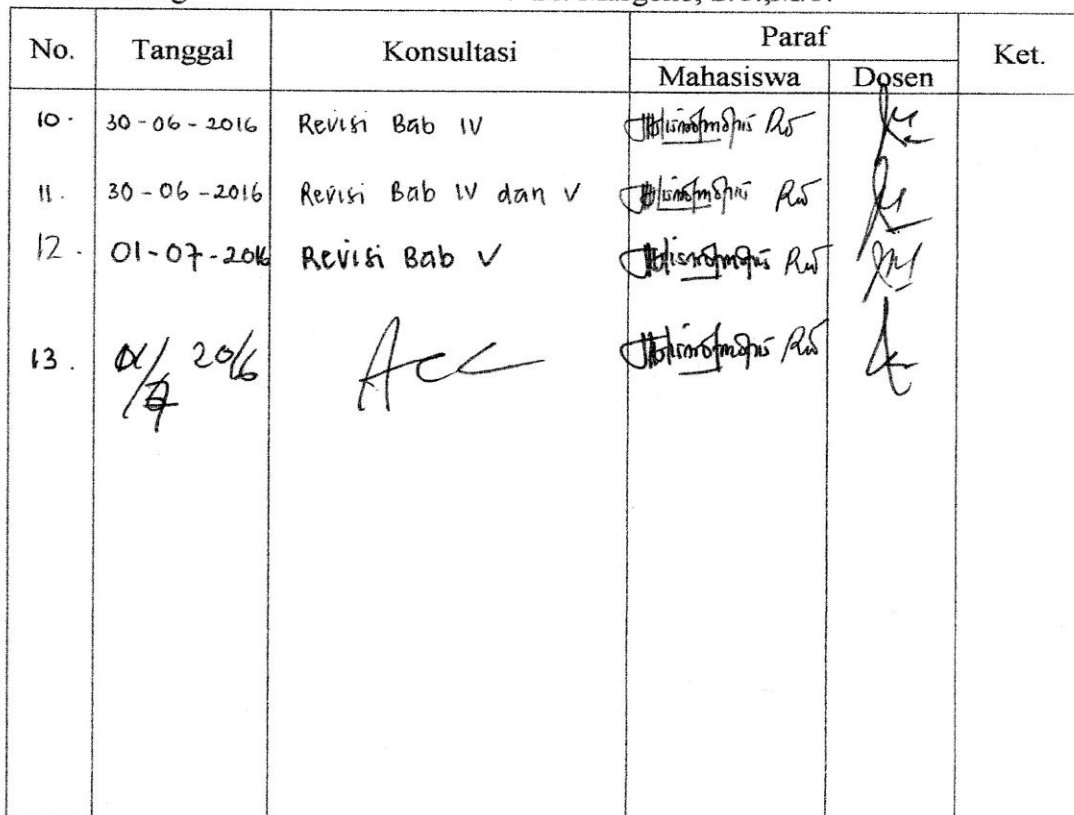 No. Tanggal Konsultasi Paraf Ket.
Mahasiswa Dosen
10. 30-06-2016 Revisi Bab IV
11. 30-06-2016 Revisi Bab IV dan V
12. 01-07-2016 Revisi Bab V
13. 2016 Acc